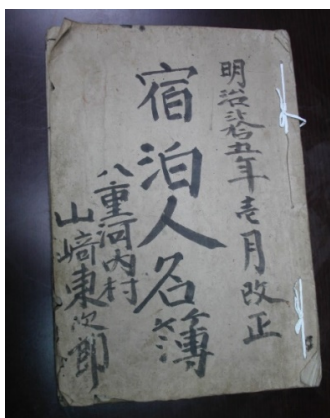 明治丗五年壱月改正
宿泊人名簿
八重河内村
山﨑東次郎